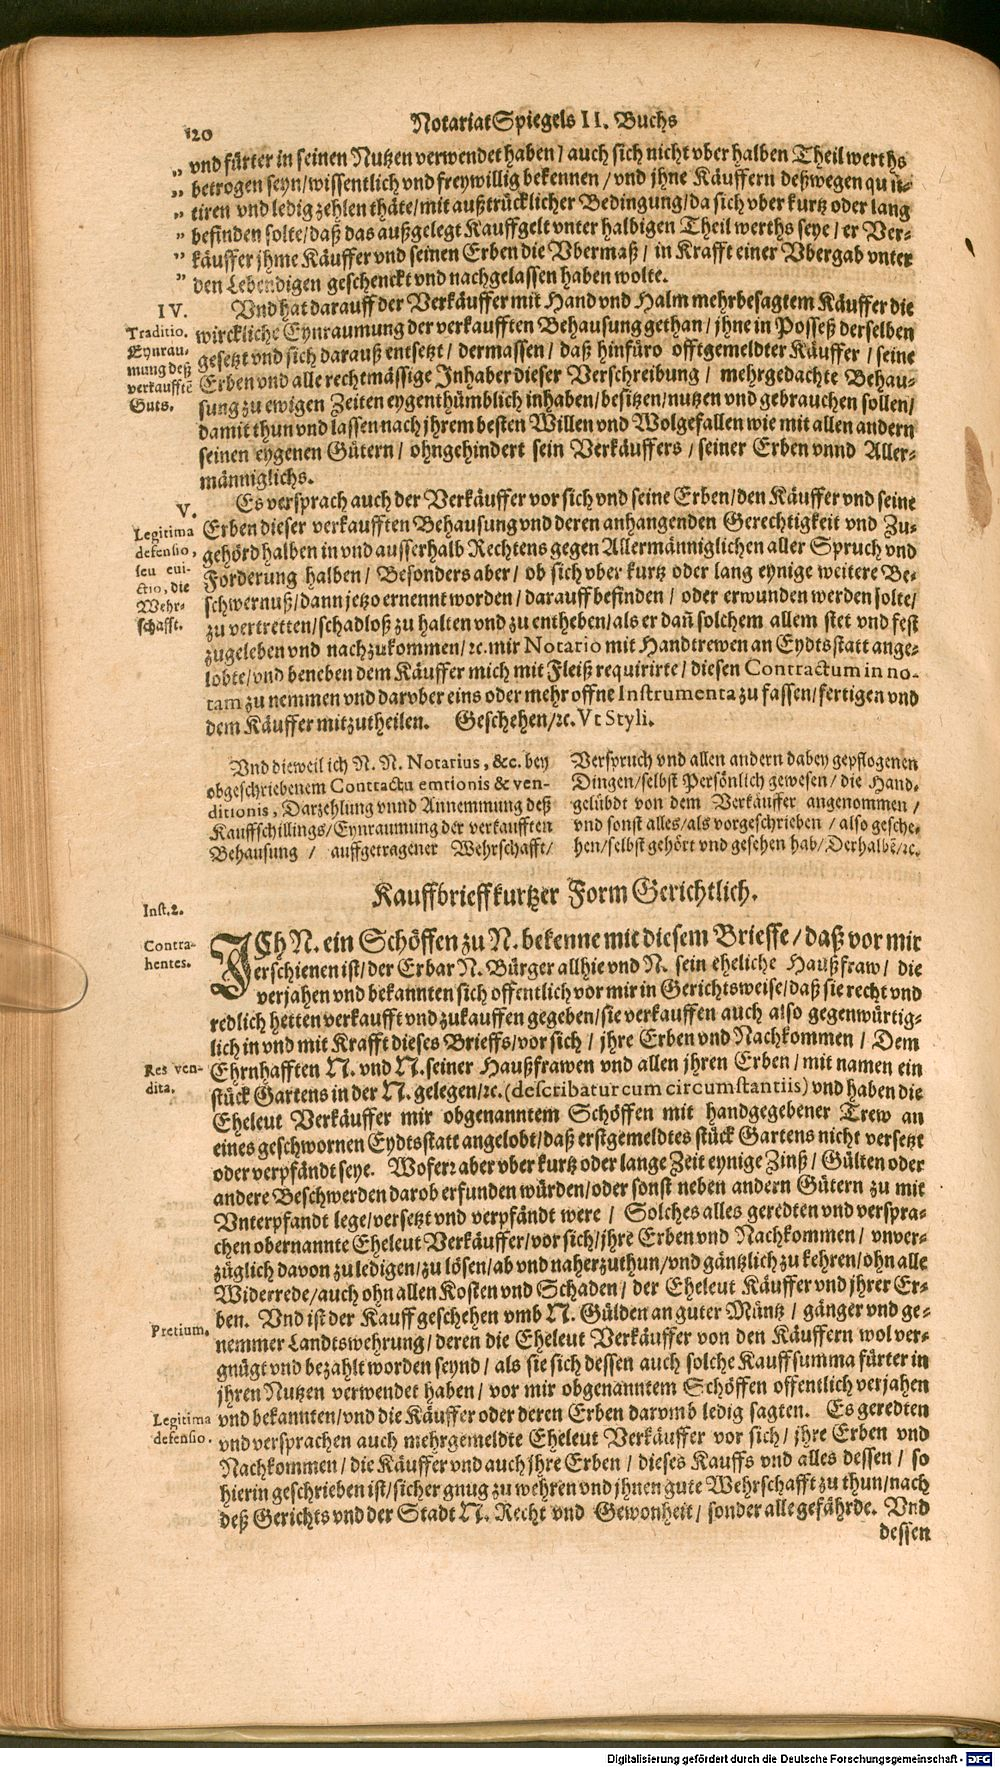 120
NotariatSpiegels II. Buchs
„ vnd fürter in seinen Nutzen verwendet haben / auch sich nicht vber halben Theil werths
„ betrogen seyn/wissentlich vnd freywillig bekennen / vnd jhne Käuffern deßwegen quit-
„ tiren vnd ledig zehlen thäte/mit außtrücklicher Bedingung/da sich vber kurtz oder lang
„ befinden solte/daß das außgelegt Kauffgelt vnter halbigen Theil werths seye / er Ver-
„ käuffer jhme Käuffer vnd seinen Erben die Vbermaß / in Krafft einer Vbergab vnter
„ den Lebendigen geschenckt vnd nachgelassen haben wolte.
IV.
Traditio.
Eynrau-
mung deß
verkaufftē
Guts.
Vnd hat darauff der Verkäuffer mit Hand vnd Halm mehrbesagtem Käuffer die
wirckliche Eynraumung der verkaufften Behausung gethan / jhne in Posseß derselben
gesetzt vnd sich darauß entsetzt / dermassen / daß hinfüro offtgemeldter Käuffer / seine
Erben vnd alle rechtmässige Inhaber dieser Verschreibung / mehrgedachte Behau-
sung zu ewigen Zeiten eygenthümblich inhaben/besitzen/nutzen vnd gebrauchen sollen/
damit thun vnd lassen nach jhrem besten Willen vnd Wolgefallen wie mit allen andern
seinen eygenen Gütern / ohngehindert sein Verkäuffers / seiner Erben vnnd Aller-
männiglichs.
V.
Legitima
defensio,
seu evi-
ctio, die
Wehr-
schafft.
Es versprach auch der Verkäuffer vor sich vnd seine Erben/den Käuffer vnd seine
Erben dieser verkaufften Behausung vnd deren anhangenden Gerechtigkeit vnd Zu-
gehörd halben in vnd ausserhalb Rechtens gegen Allermänniglichen aller Spruch vnd
Forderung halben / Besonders aber / ob sich vber kurtz oder lang eynige weitere Be-
schwernuß/dann jetzo ernennt worden / darauff befinden / oder erwunden werden solte/
zu vertretten/schadloß zu halten vnd zu entheben/als er dañ solchem allem stet vnd fest
zugeleben vnd nachzukommen/ꝛc. mir Notario mit Handtrewen an Eydtsstatt ange-
lobte/vnd beneben dem Käuffer mich mit Fleiß requirirte / diesen Contractum in no-
tam zu nemmen vnd darvber eins oder mehr offne Instrumenta zu fassen/fertigen vnd
dem Käuffer mitzutheilen. Geschehen/ꝛc. Vt Styli.
Vnd dieweil ich N. N. Notarius, &c. bey
obgeschriebenem Contractu emtionis & ven-
ditionis, Darzehlung vnnd Annemmung deß
Kauffschillings/Eynraumung der verkaufften
Behausung / auffgetragener Wehrschafft/
Verspruch vnd allen andern dabey gepflogenen
Dingen/selbst Persönlich gewesen / die Hand-
gelübdt von dem Verkäuffer angenommen /
vnd sonst alles/als vorgeschrieben / also gesche-
hen/selbst gehört vnd gesehen hab/Derhalbē/ꝛc.
Kauffbrieff kurtzer Form Gerichtlich.
Inst. 2.
Contra-
hentes.
ICh N. ein Schöffen zu N. bekenne mit diesem Brieffe / daß vor mir
erschienen ist/der Erbar N. Bürger allhie vnd N. sein eheliche Haußfraw / die
verjahen vnd bekannten sich offentlich vor mir in Gerichtsweise/daß sie recht vnd
redlich hetten verkaufft vnd zukauffen gegeben/sie verkauffen auch also gegenwürtig-
lich in vnd mit Krafft dieses Brieffs/vor sich / jhre Erben vnd Nachkommen / Dem
Res ven-
dita.
Ehrnhafften N. vnd N. seiner Haußfrawen vnd allen jhren Erben / mit namen ein
stück Gartens in der N. gelegen/ꝛc. (describatur cum circumstantiis) vnd haben die
Eheleut Verkäuffer mir obgenanntem Schöffen mit handgegebener Trew an
eines geschwornen Eydtsstatt angelobt/daß erstgemeldtes stück Gartens nicht versetzt
oder verpfändt seye. Wofern aber vber kurtz oder lange Zeit eynige Zinß / Gülten oder
andere Beschwerden darob erfunden würden/oder sonst neben andern Gütern zu mit
Vnterpfandt lege/versetzt vnd verpfändt were / Solches alles geredten vnd verspra-
chen obernannte Eheleut Verkäuffer/vor sich/jhre Erben vnd Nachkommen / vnver-
züglich davon zu ledigen/zu lösen/ab vnd naher zuthun/vnd gäntzlich zu kehren/ohn alle
Widerrede/auch ohn allen Kosten vnd Schaden / der Eheleut Käuffer vnd jhrer Er-
ben. Vnd ist der Kauff geschehen vmb N. Gülden an guter Müntz / gänger vnd ge-
Pretium.
nemmer Landtswehrung/deren die Eheleut Verkäuffer von den Käuffern wol ver-
gnügt vnd bezahlt worden seynd / als sie sich dessen auch solche Kauffsumma fürter in
jhren Nutzen verwendet haben / vor mir obgenanntem Schöffen offentlich verjahen
Legitima
defensio.
vnd bekannten/vnd die Käuffer oder deren Erben darvmb ledig sagten. Es geredten
vnd versprachen auch mehrgemeldte Eheleut Verkäuffer vor sich / jhre Erben vnd
Nachkommen / die Käuffer vnd auch jhre Erben / dieses Kauffs vnd alles dessen / so
hierin geschrieben ist/sicher gnug zu wehren vnd jhnen gute Wehrschafft zu thun/nach
deß Gerichts vnd der Stadt N. Recht vnd Gewonheit / sonder alle gefährde. Vnd
dessen
Digitalisierung gefördert durch die Deutsche Forschungsgemeinschaft - DFG